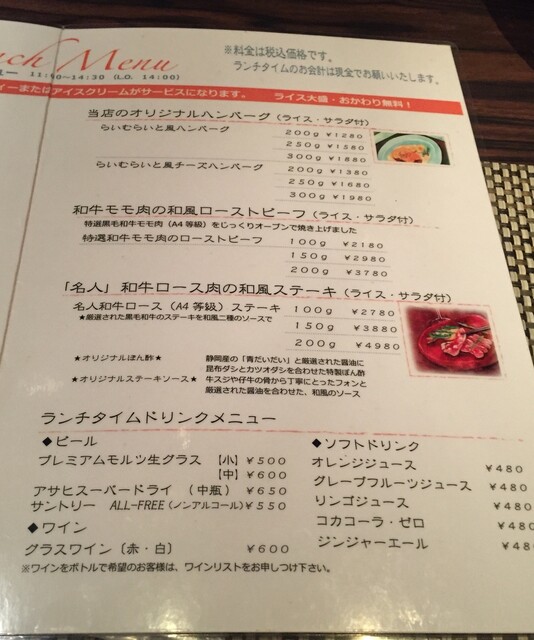 nch Menu
ー 11:30~14:30 (L.O. 14:00)
※料金は税込価格です。
ランチタイムのお会計は現金でお願いいたします。
ィーまたはアイスクリームがサービスになります。 ライス大盛・おかわり無料！
当店のオリジナルハンバーグ（ライス・サラダ付）
らいむらいと風ハンバーグ 200g ¥1280
250g ¥1580
300g ¥1880
らいむらいと風チーズハンバーグ 200g ¥1380
250g ¥1680
300g ¥1980
和牛モモ肉の和風ローストビーフ（ライス・サラダ付）
特選黒毛和牛モモ肉（A4等級）をじっくりオーブンで焼き上げました
特選和牛モモ肉のローストビーフ 100g ¥2180
150g ¥2980
200g ¥3780
「名人」和牛ロース肉の和風ステーキ（ライス・サラダ付）
名人和牛ロース（A4等級）ステーキ 100g ¥2780
★厳選された黒毛和牛のステーキを和風二種のソースで 150g ¥3880
200g ¥4980
★オリジナルぽん酢★ 静岡産の「青だいだい」と厳選された醤油に
昆布ダシとカツオダシを合わせた特製ぽん酢
★オリジナルステーキソース★ 牛スジや仔牛の骨から丁寧にとったフォンと
厳選された醤油を合わせた、和風のソース
ランチタイムドリンクメニュー
◆ビール
プレミアムモルツ生グラス 【小】¥500
【中】¥600
アサヒスーパードライ （中瓶） ¥650
サントリー ALL-FREE（ノンアルコール）¥550
◆ワイン
グラスワイン〔赤・白〕 ¥600
※ワインをボトルで希望のお客様は、ワインリストをお申しつけ下さい。
◆ソフトドリンク
オレンジジュース ¥480
グレープフルーツジュース ¥480
リンゴジュース ¥480
コカコーラ・ゼロ ¥480
ジンジャーエール ¥48